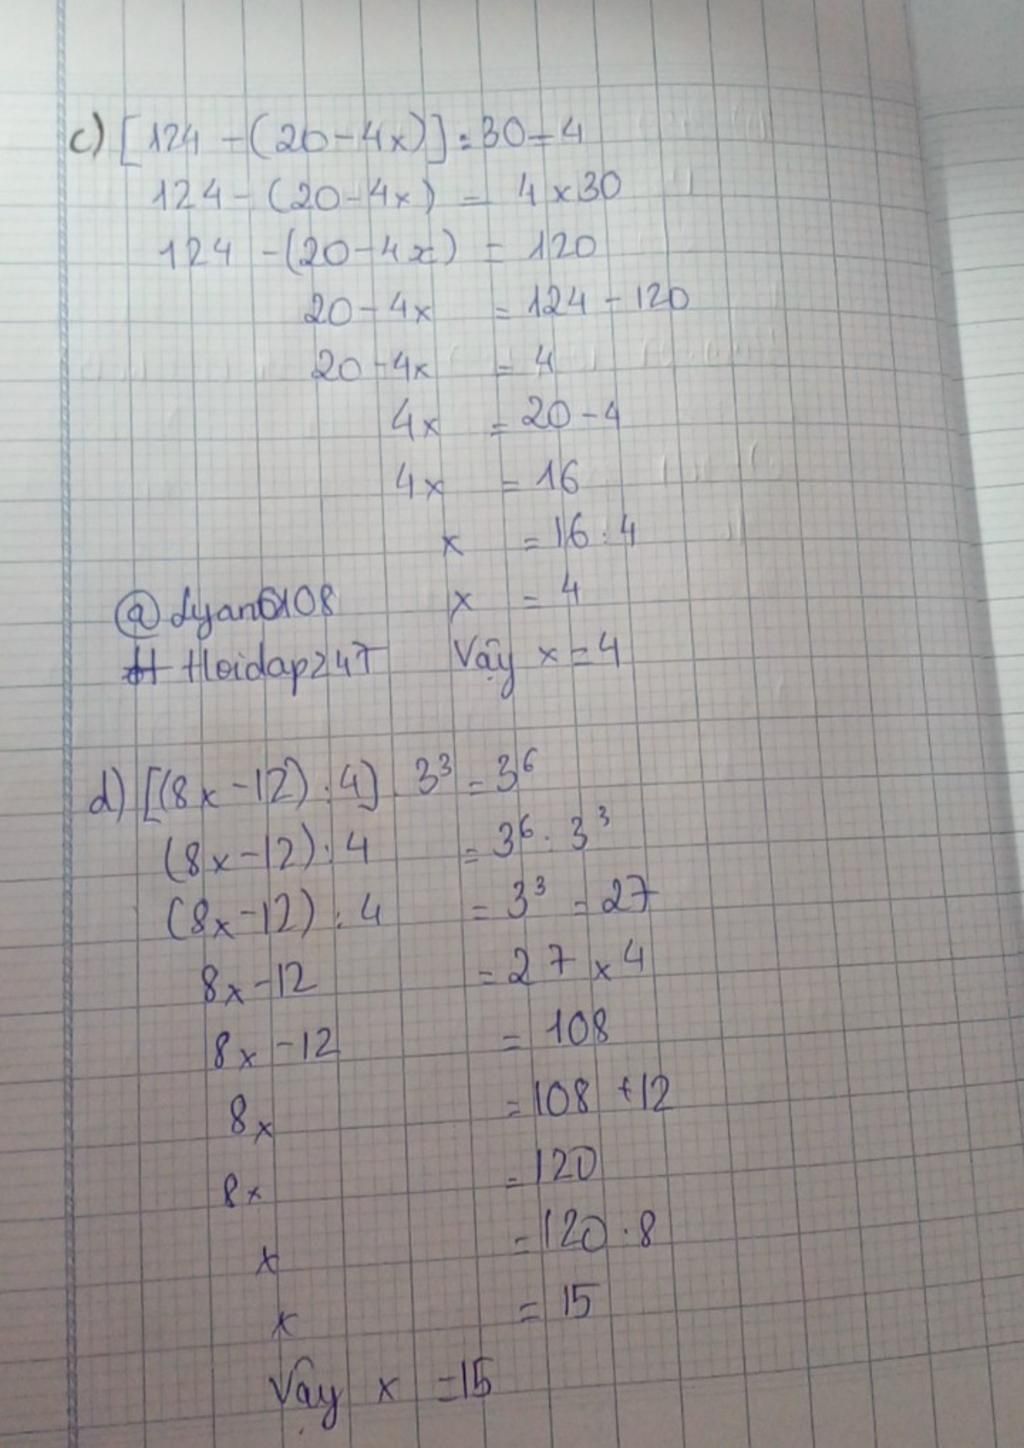 c) [124 - (20 - 4x)] : 30 = 4
124 - (20 - 4x) = 4 x 30
124 - (20 - 4x) = 120
20 - 4x = 124 - 120
20 - 4x = 4
4x = 20 - 4
4x = 16
x = 16 : 4
@Lyan6108 x = 4
# Hoidap247 Vậy x = 4
d) [(8x - 12) : 4] . 3³ = 3⁶
(8x - 12) : 4 = 3⁶ : 3³
(8x - 12) : 4 = 3³ = 27
8x - 12 = 27 x 4
8x - 12 = 108
8x = 108 + 12
8x = 120
x = 120 : 8
x = 15
Vậy x = 15